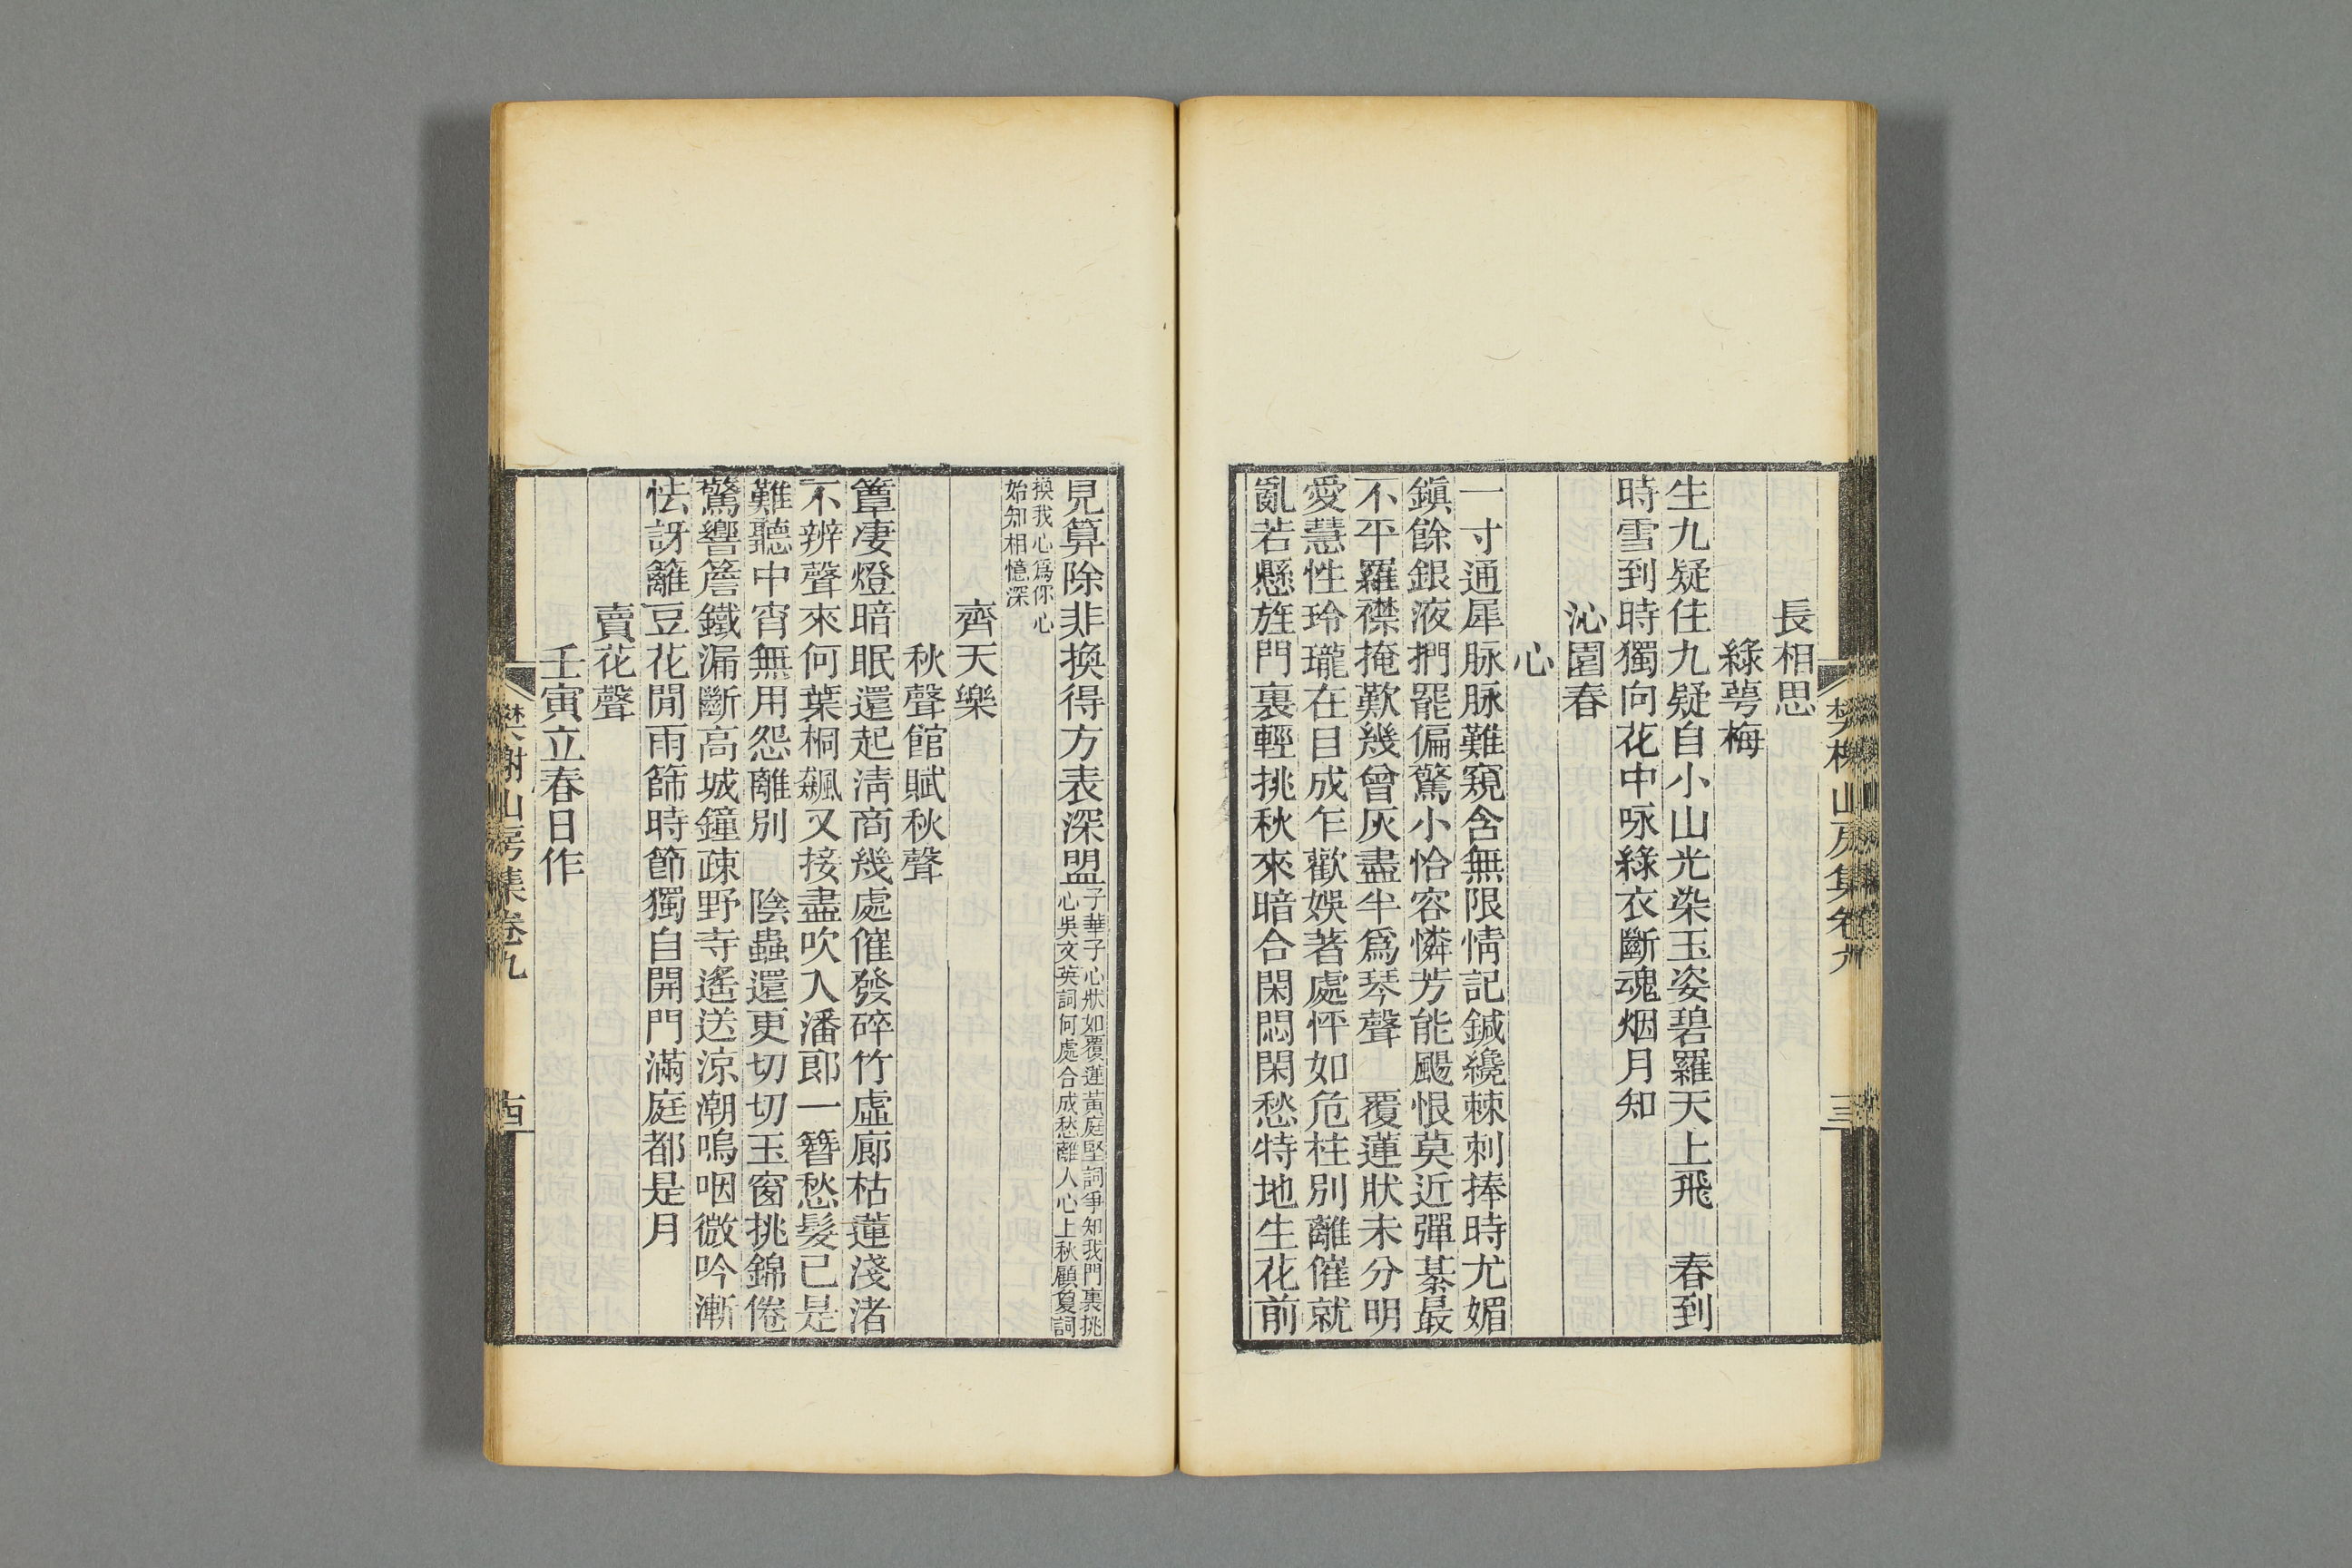 長相思
綠萼梅
生九疑住九疑自小山光染玉姿碧羅天上飛　春到
時雪到時獨向花中咏綠衣斷魂烟月知
沁園春
心
一寸通犀脉脉難窺含無限情記鍼纔棘刺捧時尤媚
鎭餘銀液捫罷偏驚小恰容憐芳能颺恨莫近彈棊最
不平羅襟掩歎幾曾灰盡半爲琴聲　覆蓮狀未分明
愛慧性玲瓏在目成乍歡娛著處怦如危柱別離催就
亂若懸旌門裏輕挑秋來暗合閑悶閑愁特地生花前
見算除非換得方表深盟子華子心狀如覆蓮黃庭堅詞爭知我門裏挑
心吳文英詞何處合成愁離人心上秋顧敻詞
換我心爲你心
始知相憶深
齊天樂
秋聲館賦秋聲
簟凄燈暗眠還起淸商幾處催發碎竹虛廊枯蓮淺渚
不辨聲來何葉桐飄又接盡吹入潘郎一簪愁髮已是
難聽中宵無用怨離別　陰蟲還更切切玉窗挑錦倦
驚響簷鐵漏斷高城鐘疎野寺遙送涼潮嗚咽微吟漸
怯訝籬豆花開雨篩時節獨自開門滿庭都是月
賣花聲
壬寅立春日作
樊榭山房集卷九